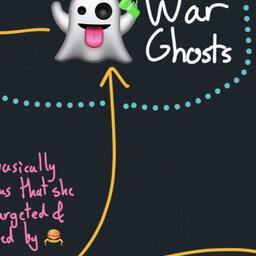 War
Ghosts
basically
us that she
targeted &
ed by